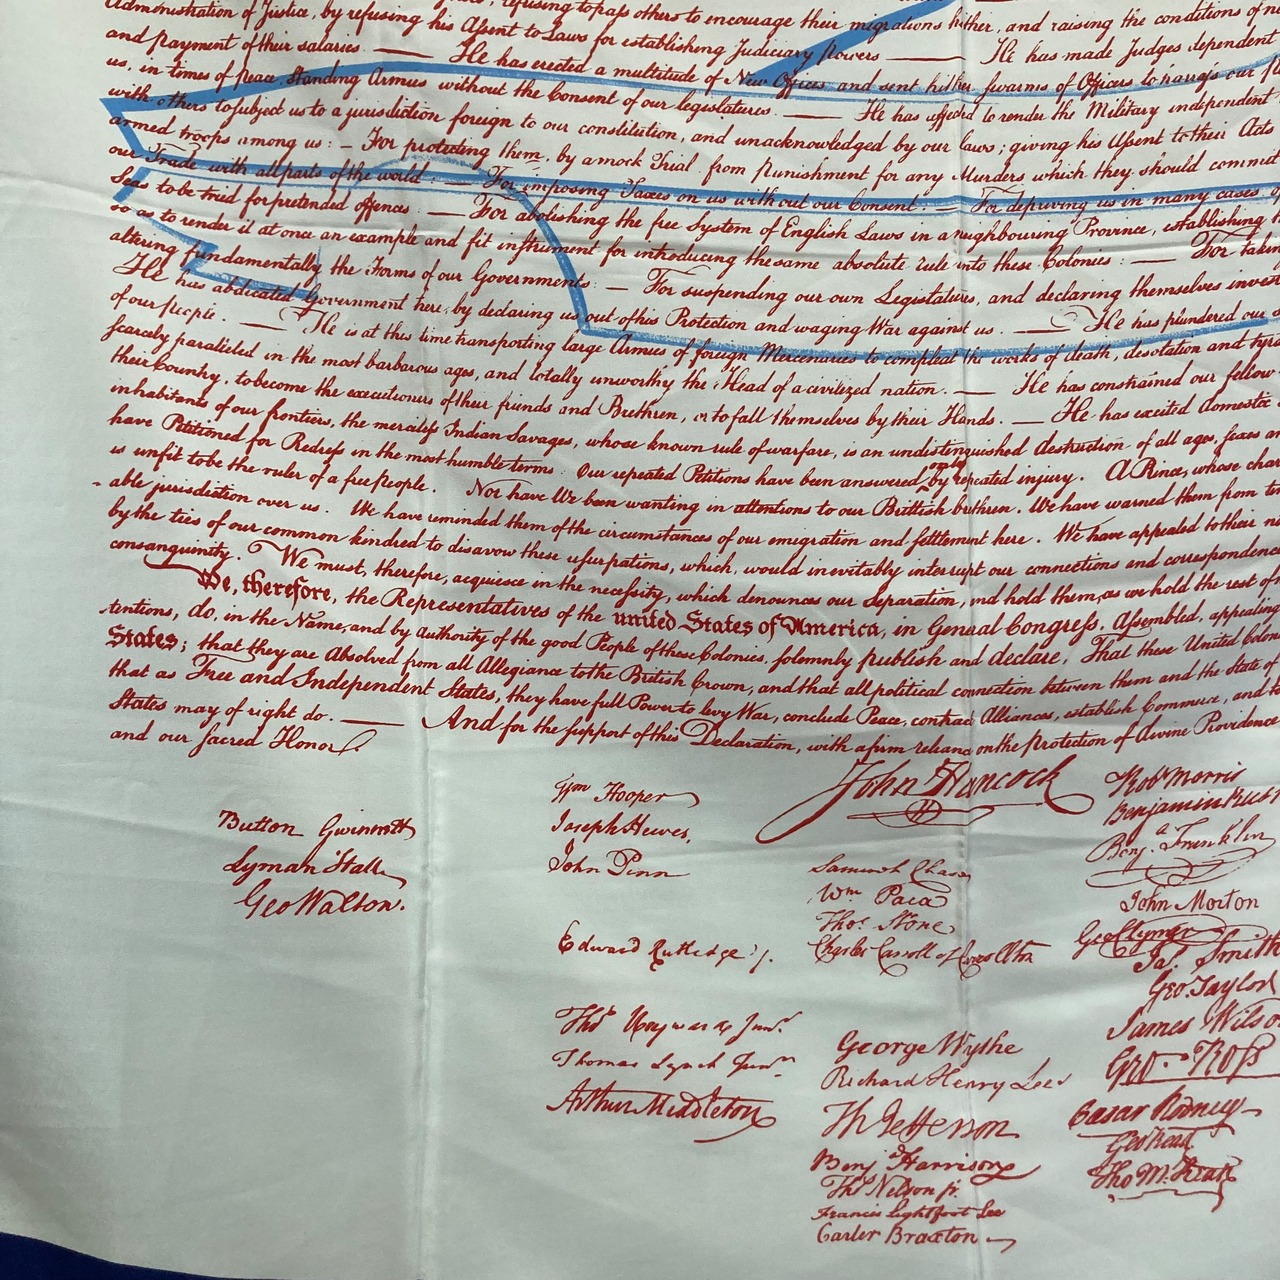 Administration of Justice, by refusing his Assent to Laws for establishing Judiciary Powers — He has made Judges dependent
and payment of their salaries. — He has erected a multitude of New Offices, and sent hither swarms of Officers to harrass our
us, in times of peace Standing Armies without the Consent of our legislatures. — He has affected to render the Military independent
with others to subject us to a jurisdiction foreign to our constitution, and unacknowledged by our laws; giving his Assent to their Acts
armed troops among us: — For protecting them, by a mock Trial from Punishment for any Murders which they should commit
our Trade with all parts of the world: — For imposing Taxes on us without our Consent: — For depriving us in many cases
Seas to be tried for pretended offences: — For abolishing the free System of English Laws in a neighbouring Province, establishing
so as to render it at once an example and fit instrument for introducing the same absolute rule into these Colonies: — For taking
altering fundamentally the Forms of our Governments: — For suspending our own Legislatures, and declaring themselves invest
He has abdicated Government here, by declaring us out of his Protection and waging War against us. — He has plundered our
of our people. — He is at this time transporting large Armies of foreign Mercenaries to compleat the works of death, desolation and tyra
scarcely paralleled in the most barbarous ages, and totally unworthy the Head of a civilized nation. — He has constrained our fellow
their Country, to become the executioners of their friends and Brethren, or to fall themselves by their Hands. — He has excited domestic
inhabitants of our frontiers, the merciless Indian Savages, whose known rule of warfare, is an undistinguished destruction of all ages, sexes an
have Petitioned for Redress in the most humble terms: Our repeated Petitions have been answered only by repeated injury. A Prince, whose char
is unfit to be the ruler of a free people. Nor have We been wanting in attentions to our Brittish brethren. We have warned them from
able jurisdiction over us. We have reminded them of the circumstances of our emigration and settlement here. We have appealed to their
by the ties of our common kindred to disavow these usurpations, which, would inevitably interrupt our connections and correspondence
consanguinity. We must, therefore, acquiesce in the necessity, which denounces our Separation, and hold them, as we hold the rest of
We, therefore, the Representatives of the united States of America, in General Congress, Assembled, appealing
tentions, do, in the Name, and by Authority of the good People of these Colonies, solemnly publish and declare, That these United Colon
States; that they are Absolved from all Allegiance to the British Crown, and that all political connection between them and the State of
that as Free and Independent States, they have full Power to levy War, conclude Peace, contract Alliances, establish Commerce, and
States may of right do. — And for the support of this Declaration, with a firm reliance on the protection of divine Providence
and our sacred Honor.
John Hancock
Button Gwinnett
Lyman Hall
Geo Walton.
Wm Hooper
Joseph Hewes,
John Penn
Edward Rutledge /.
Thos Heyward Junr.
Thomas Lynch Junr.
Arthur Middleton
Samuel Chase
Wm. Paca
Thos. Stone
Charles Carroll of Carrollton
George Wythe
Richard Henry Lee
Th Jefferson
Benj Harrison
Thos Nelson jr.
Francis Lightfoot Lee
Carter Braxton
Robt Morris
Benjamin Rush
Benj. Franklin
John Morton
Geo Clymer
Jas. Smith
Geo. Taylor
James Wilso
Geo. Ross
Caesar Rodney
Geo Read
Tho M:Kean